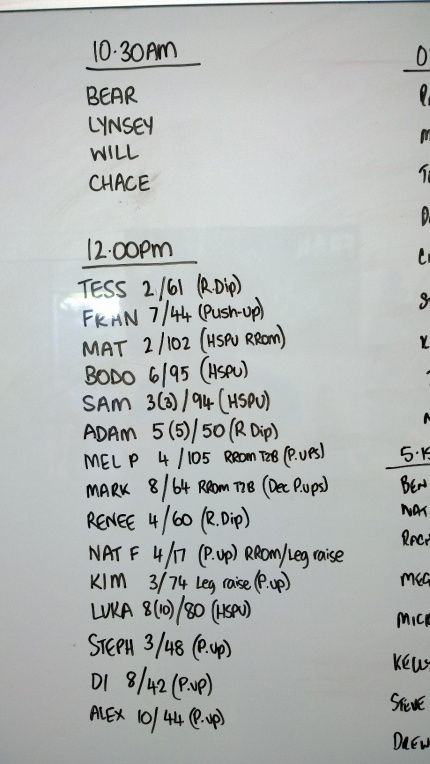 10.30AM
BEAR
LYNSEY
WILL
CHACE
12.00PM
TESS 2/61 (R.Dip)
FRAN 7/44 (Push-up)
MAT 2/102 (HSPU RROM)
BODO 6/95 (HSPU)
SAM 3(3)/94 (HSPU)
ADAM 5(5)/50 (R Dip)
MEL P 4/105 RROM T2B (P.ups)
MARK 8/64 RROM T2B (Dec P.ups)
RENEE 4/60 (R.Dip)
NAT F 4/17 (P.up) RROM/Leg raise
KIM 3/74 Leg raise (P.up)
LUKA 8(10)/80 (HSPU)
STEPH 3/48 (P.up)
DI 8/42 (P.up)
ALEX 10/44 (P.up)
BEN
NAT
STEVE
DREW